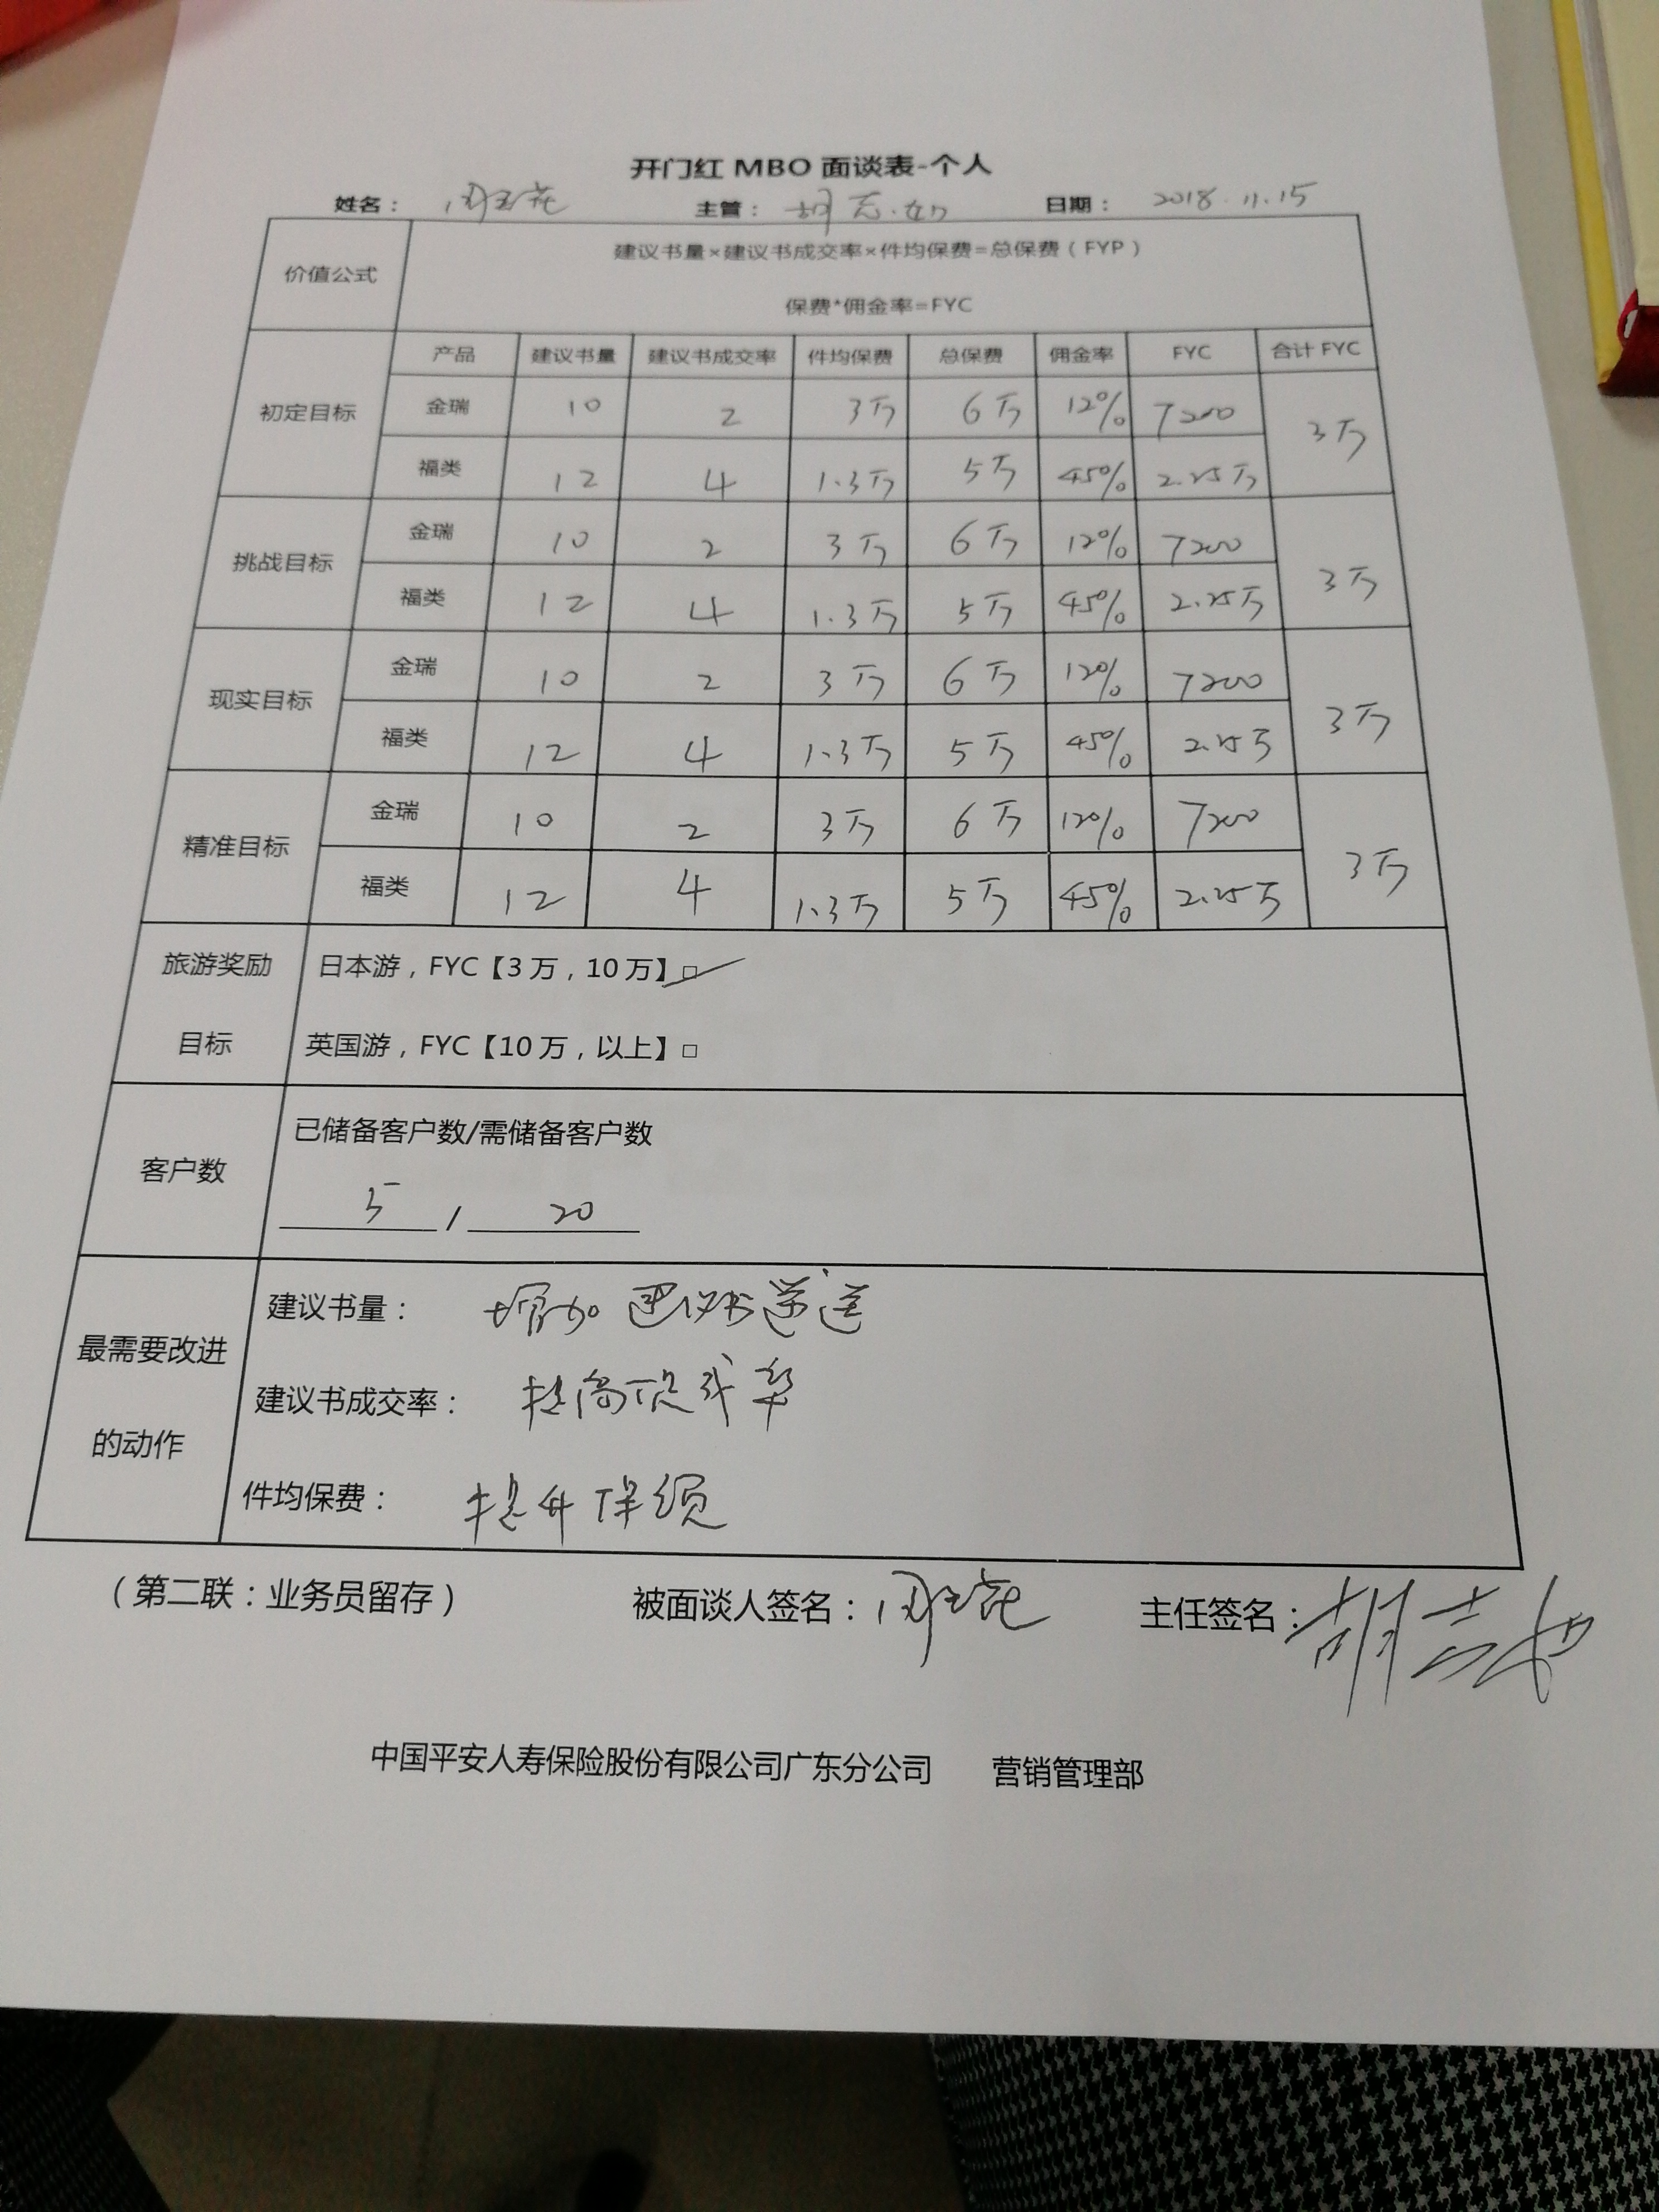 开门红 MBO 面谈表-个人
姓名： 周玉花 主管： 胡志如 日期： 2018.11.15
价值公式 建议书量×建议书成交率×件均保费=总保费（FYP）
保费*佣金率=FYC
产品 建议书量 建议书成交率 件均保费 总保费 佣金率 FYC 合计 FYC
初定目标 金瑞 10 2 3万 6万 12% 7200 3万
福类 12 4 1.3万 5万 45% 2.25万
挑战目标 金瑞 10 2 3万 6万 12% 7200 3万
福类 12 4 1.3万 5万 45% 2.25万
现实目标 金瑞 10 2 3万 6万 12% 7200 3万
福类 12 4 1.3万 5万 45% 2.25万
精准目标 金瑞 10 2 3万 6万 12% 7200 3万
福类 12 4 1.3万 5万 45% 2.25万
旅游奖励目标 日本游，FYC【3万，10万】☑
英国游，FYC【10万，以上】□
客户数 已储备客户数/需储备客户数
5 / 20
最需要改进的动作
建议书量： 增加建议书递送
建议书成交率： 提高促成率
件均保费： 提升保额
（第二联：业务员留存） 被面谈人签名：周玉花 主任签名：胡志如
中国平安人寿保险股份有限公司广东分公司 营销管理部